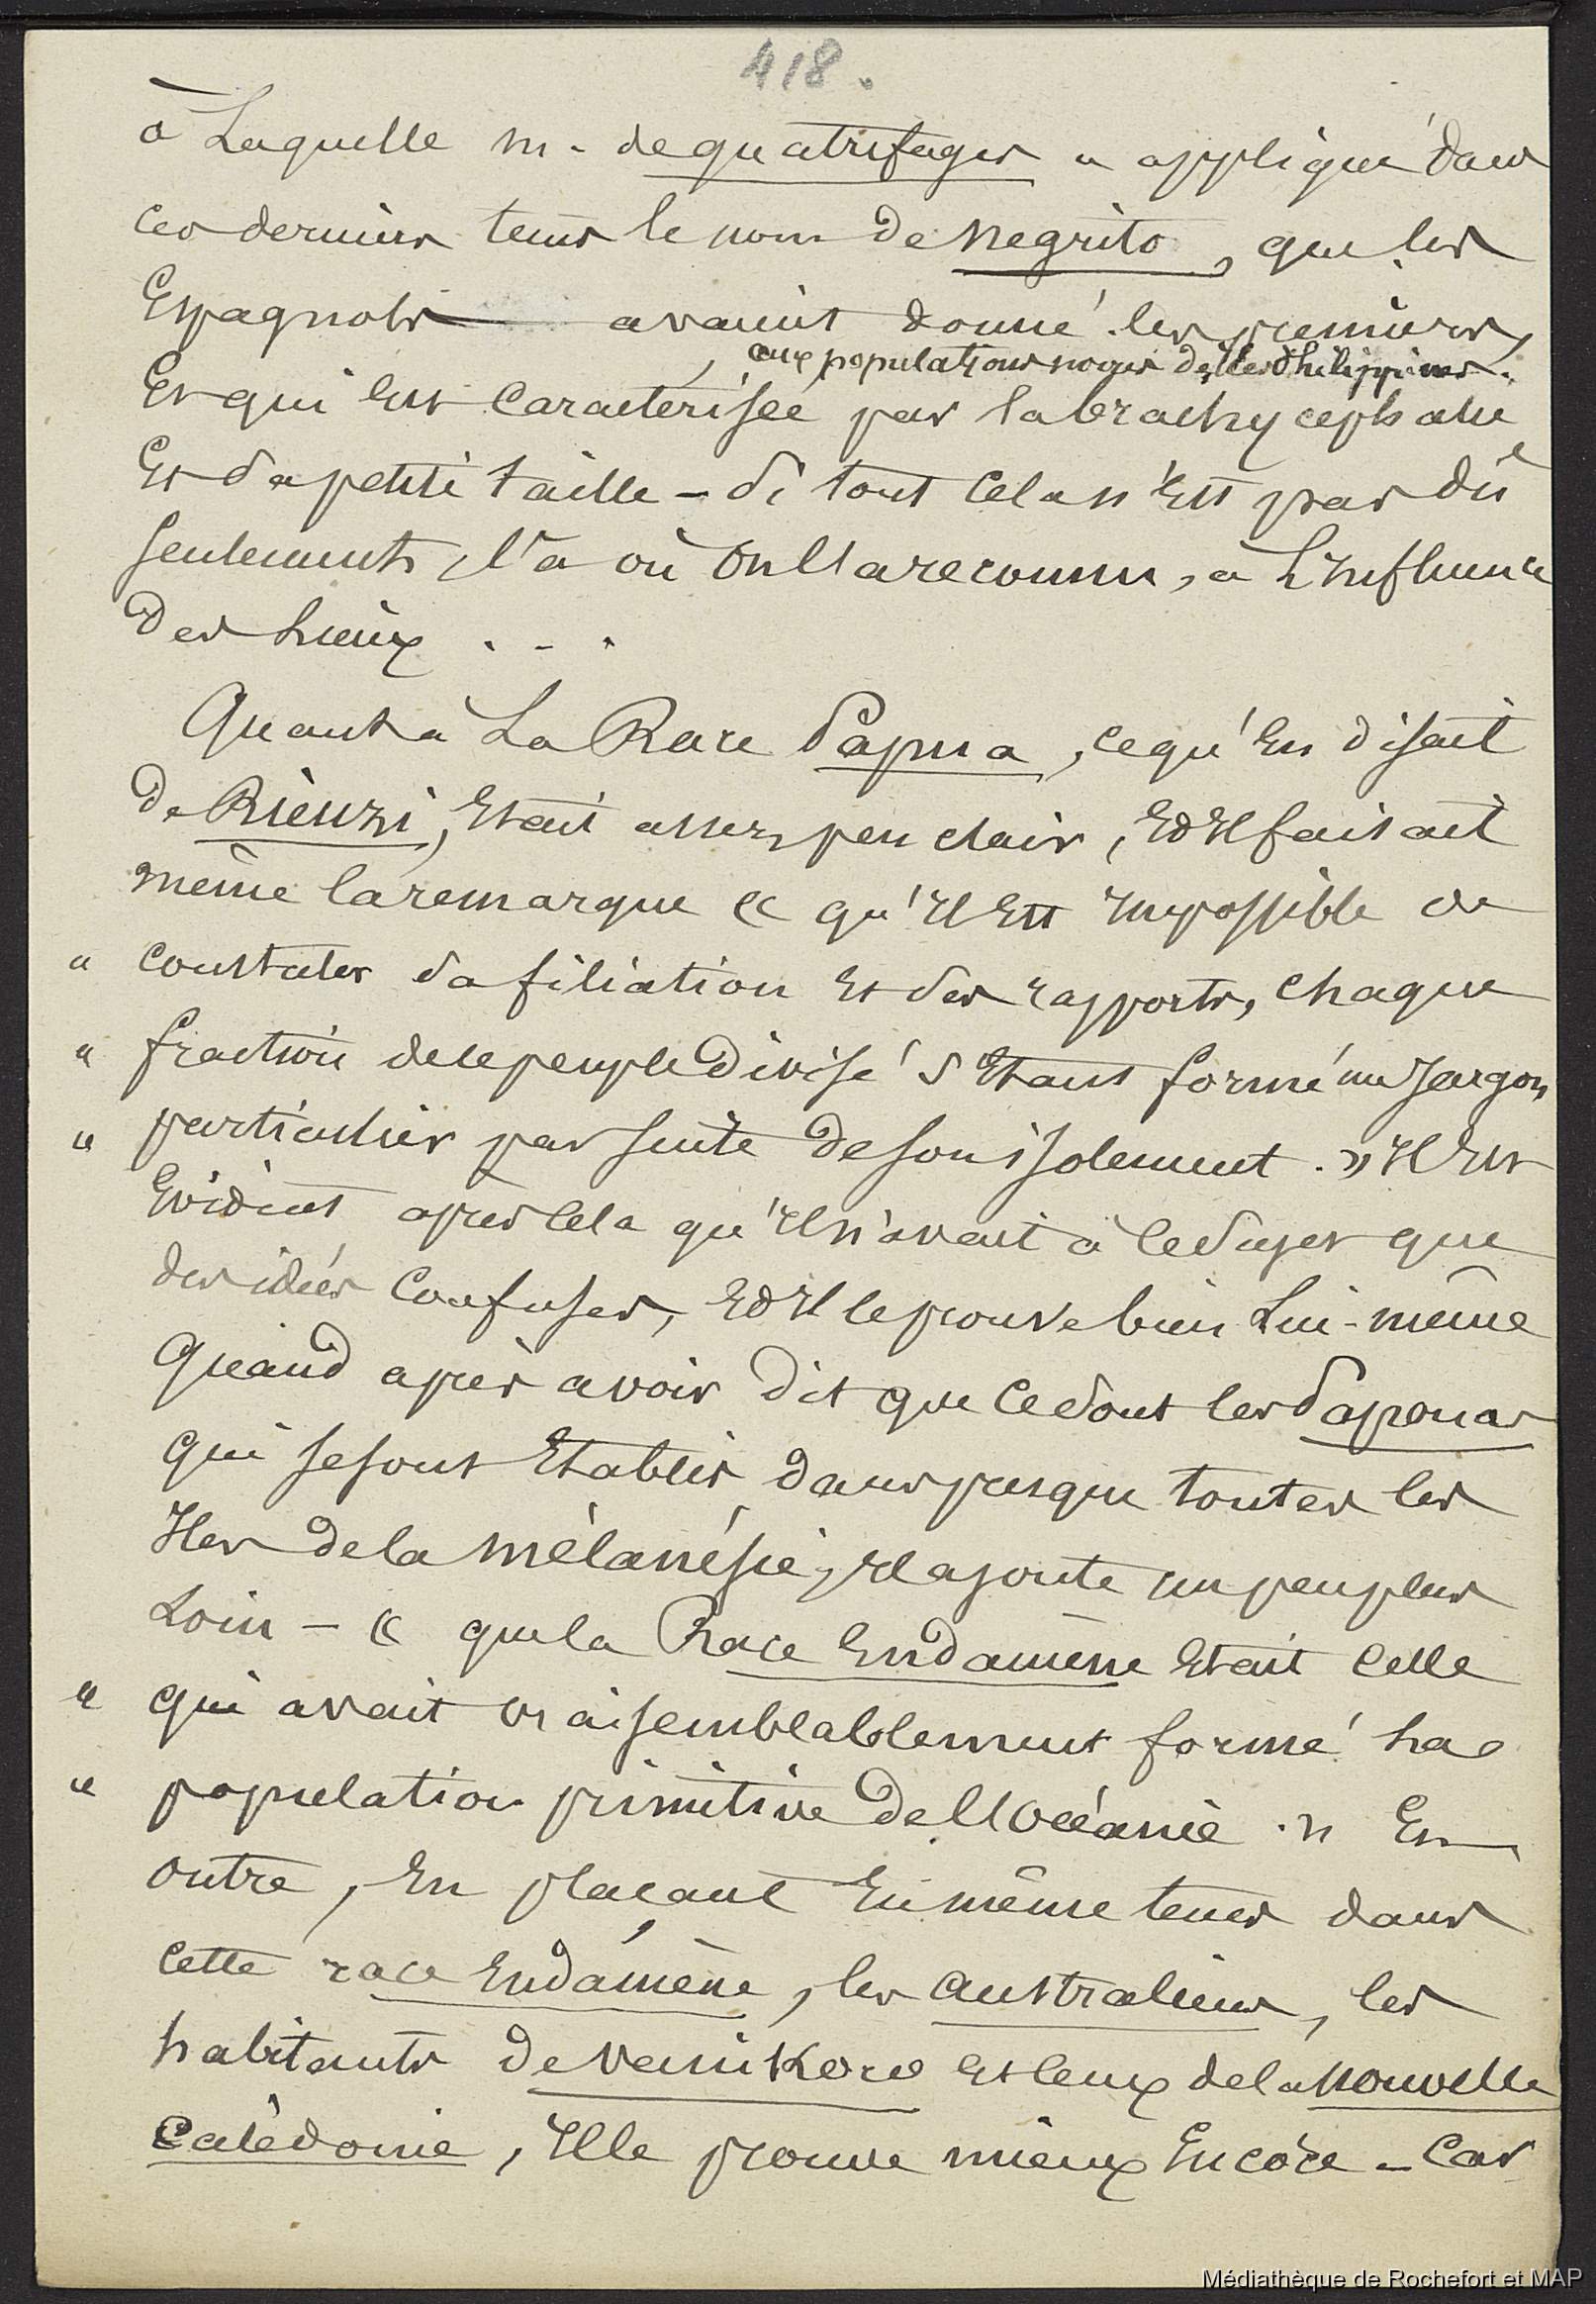 418.
à Laquelle M. de quatrefages a appliqué dans
ces derniers tems le nom de Negrito, que les
Espagnols avaient donné les premiers,
aux populations noires des Iles Philippines.
Et qui Est Caractérisée par la brachycephalie
Et sa petite taille - Si tout Cela n'Est pas dû
seulement, là où On l'a reconnu, à L'Influence
des Lieux . - .
Quant à La Race Papua, ce qu'En disait
De Rienzi, Etait assez peu clair, Et Il faisait
même la remarque « qu'Il Est Impossible de
" constater sa filiation Et ses rapports, Chaque
" fraction de ce peuple Divisé s'Etant formé un Jargon
" particulier par suite de son isolement. » Il Est
Evident après Cela qu'Il n'avait à Ce Sujet que
des idées Confuses, Et Il le prouve bien Lui-même
Quand après avoir Dit que Ce sont les Papouas
qui se sont Etablis dans presque toutes les
Iles de la Mélanésie, Il ajoute un peu plus
Loin - « que la Race Endamène Etait Celle
" qui avait vraisemblablement formé La
" population primitive de l'Océanie. » En
outre, En plaçant En même tems dans
Cette race Endamène, les Australiens, les
habitants de Vanikoro Et Ceux de la Nouvelle
Calédonie, Il le prouve mieux Encore - Car
Médiathèque de Rochefort et MAP